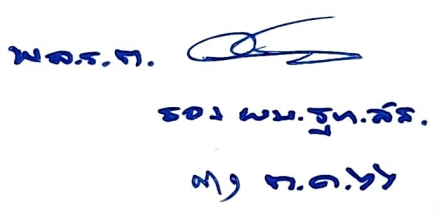 พล.ร.ต.
รอง ผบ.ฐท.สส.
๓๑ ต.ค.๖๖